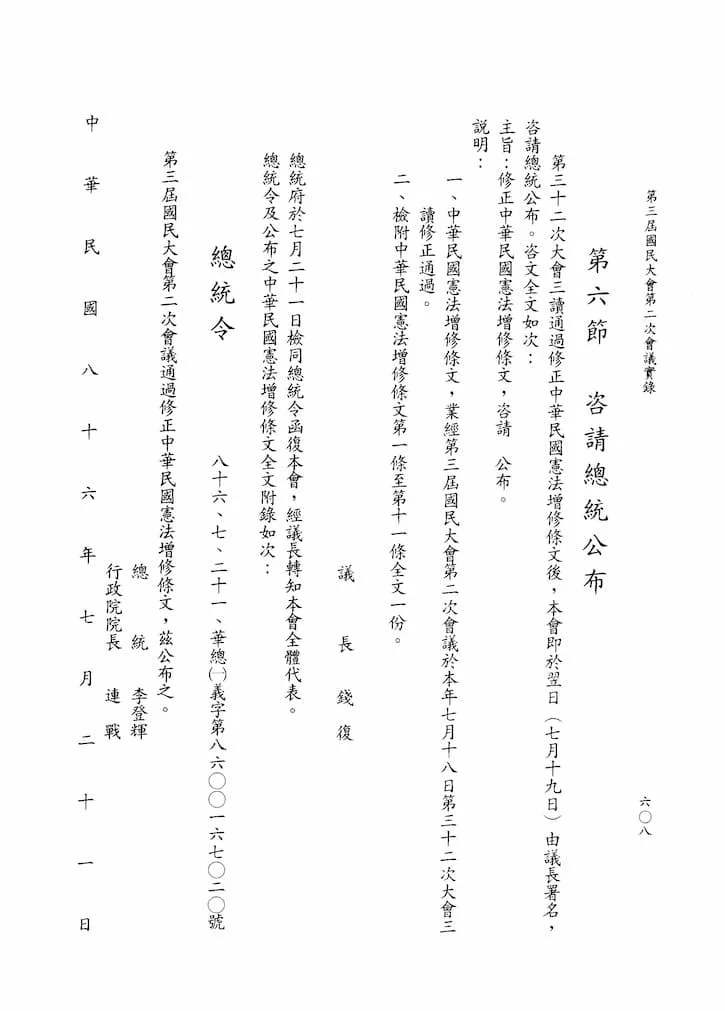 第三屆國民大會第二次會議實錄
六〇八
第六節　咨請總統公布
第三十二次大會三讀通過修正中華民國憲法增修條文後，本會即於翌日（七月十九日）由議長署名，
咨請總統公布。咨文全文如次：
主旨：修正中華民國憲法增修條文，咨請　公布。
說明：
一、中華民國憲法增修條文，業經第三屆國民大會第二次會議於本年七月十八日第三十二次大會三
讀修正通過。
二、檢附中華民國憲法增修條文第一條至第十一條全文一份。
議長　錢復
總統府於七月二十一日檢同總統令函復本會，經議長轉知本會全體代表。
總統令及公布之中華民國憲法增修條文全文附錄如次：
總統令　八十六、七、二十一、華總㈠義字第八六〇〇一六七〇二〇號
第三屆國民大會第二次會議通過修正中華民國憲法增修條文，茲公布之。
總統　李登輝
行政院院長　連戰
中華民國八十六年七月二十一日